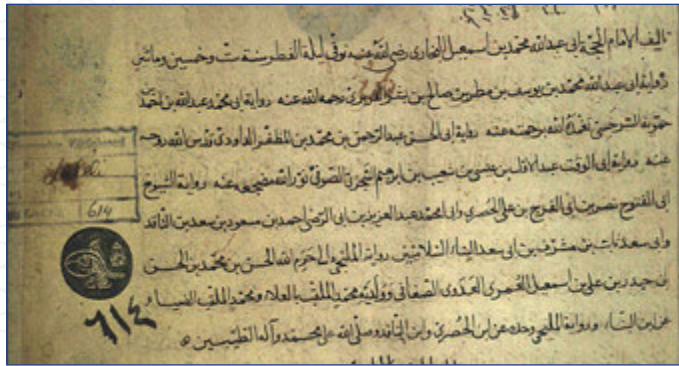 تاليف الامام الحجة ابى عبد الله محمد بن اسمعيل البخارى رضى الله عنه توفى ليلة الفطر سنة ست وخمسين ومائتين
رواية ابى عبد الله محمد بن يوسف بن مطر بن صالح بن بشر الفربرى رحمه الله عنه رواية ابى محمد عبد الله بن احمد بن
حمويه السرخسى تغمده الله برحمته عنه رواية ابى الحسن عبد الرحمن بن محمد بن المظفر الداودى قدس الله روحه
عنه رواية ابى الوقت عبد الاول بن عيسى بن شعيب بن ابرهيم السجزى الصوفى نور الله مضجعه عنه رواية الشيوخ
ابى الفتوح نصر بن ابى الفرج بن على الحصرى وابى محمد عبد العزيز بن ابى الرضى احمد بن مسعود بن سعد بن الناقد
وابى سعد ثابت بن مشرف بن ابى سعد البناء رواية الملتجى الى حرم الله الحسن بن محمد بن الحسن
ابن حيدر بن على بن اسمعيل العمرى العدوى الصغانى وولديه محمد الملقب بالعلاء ومحمد الملقب
عن ابن البناء ورواية الملتجى وحده عن ابن الحصرى وابن الناقد وصلى الله على محمد وآله الطيبين
614
٦١٤